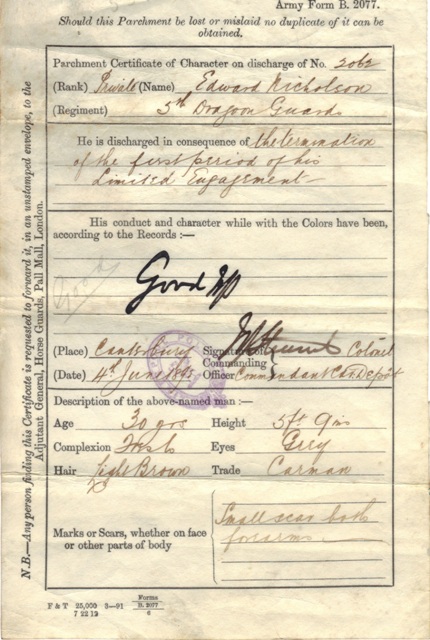 Army Form B. 2077.
Should this Parchment be lost or mislaid no duplicate of it can be
obtained.
Parchment Certificate of Character on discharge of No. 2062
(Rank) Private (Name) Edward Nicholson
(Regiment) 5th Dragoon Guards
He is discharged in consequence of the termination
of the first period of his
Limited Engagement
His conduct and character while with the Colors have been,
according to the Records :—
Good
Good
(Place) Canterbury Signature of Colonel
Commanding
(Date) 4th June 1895 Officer Commandant Cav. Depôt
Description of the above-named man :—
Age 30 yrs Height 5ft 9ins
Complexion Fresh Eyes Grey
Hair Light Brown Trade Carman
Marks or Scars, whether on face
or other parts of body
Small scar both
forearms
F & T 25,000 3—91 Forms
B. 2077
6
7 22 12
N.B.—Any person finding this Certificate is requested to forward it, in an unstamped envelope, to the
Adjutant General, Horse Guards, Pall Mall, London.